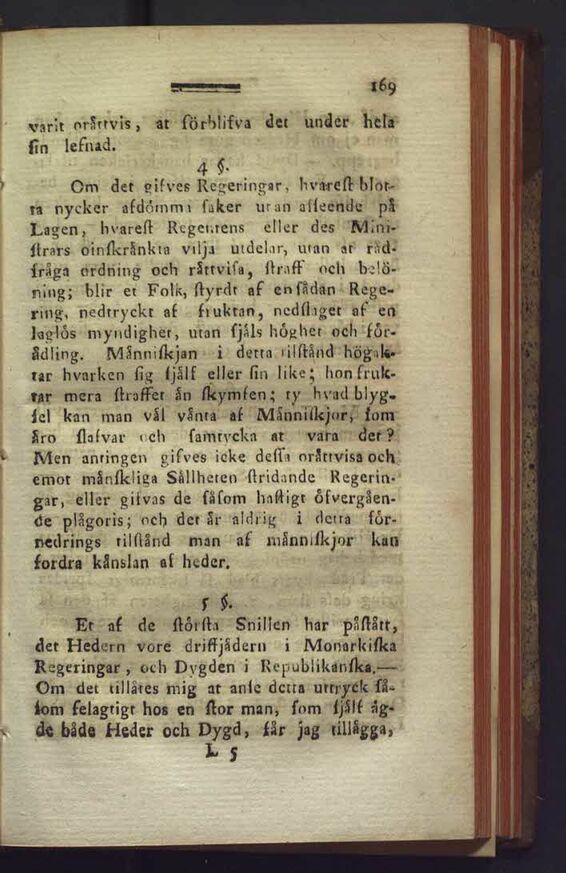 169
varit oråttvis, at förblifva det under hela
sin lefnad.
4 §.
Om det gifves Regeringar, hvarest blot-
ta nycker afdömma saker utan afseende på
Lagen, hvarest Regentens eller des Mini-
strars oinskrånkta vilja utdelar, utan at råd-
fråga ordning och råttvisa, straff och belö-
ning; blir et Folk, styrdt af en sådan Rege-
ring, nedtryckt af fruktan, nedslaget af en
laglös myndighet, utan själs höghet och för-
ådling. Månniskjan i detta tilstånd högak-
tar hvarken sig sjålf eller sin like; hon fruk-
tar mera straffet ån skymfen; ty hvad blyg-
sel kan man vål vånta af Månniskjor, som
åro slafvar och samtycka at vara det?
Men antingen gifves icke dessa oråttvisa och
emot månskliga Sållheten stridande Regerin-
gar, eller gifvas de såsom hastigt öfvergåen-
de plågoris; och det år aldrig i detta för-
nedrings tilstånd man af månniskjor kan
fordra kånslan af heder.
5 §.
Et af de största Snillen har påstått,
det Hedern vore driffjådern i Monarkiska
Regeringar, och Dygden i Republikanska.—
Om det tillåtes mig at anse detta uttryck så-
som felagtigt hos en stor man, som sjålf åg-
de både Heder och Dygd, får jag tillågga,
L 5